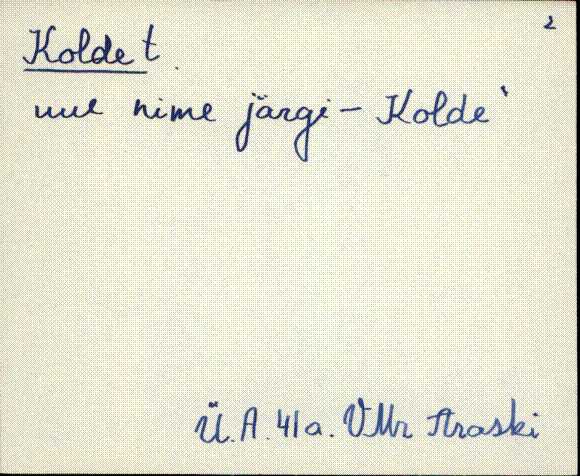 2
Kolde t.
uue nime järgi – Kolde`
Ü.A. 41a. VMr Araski